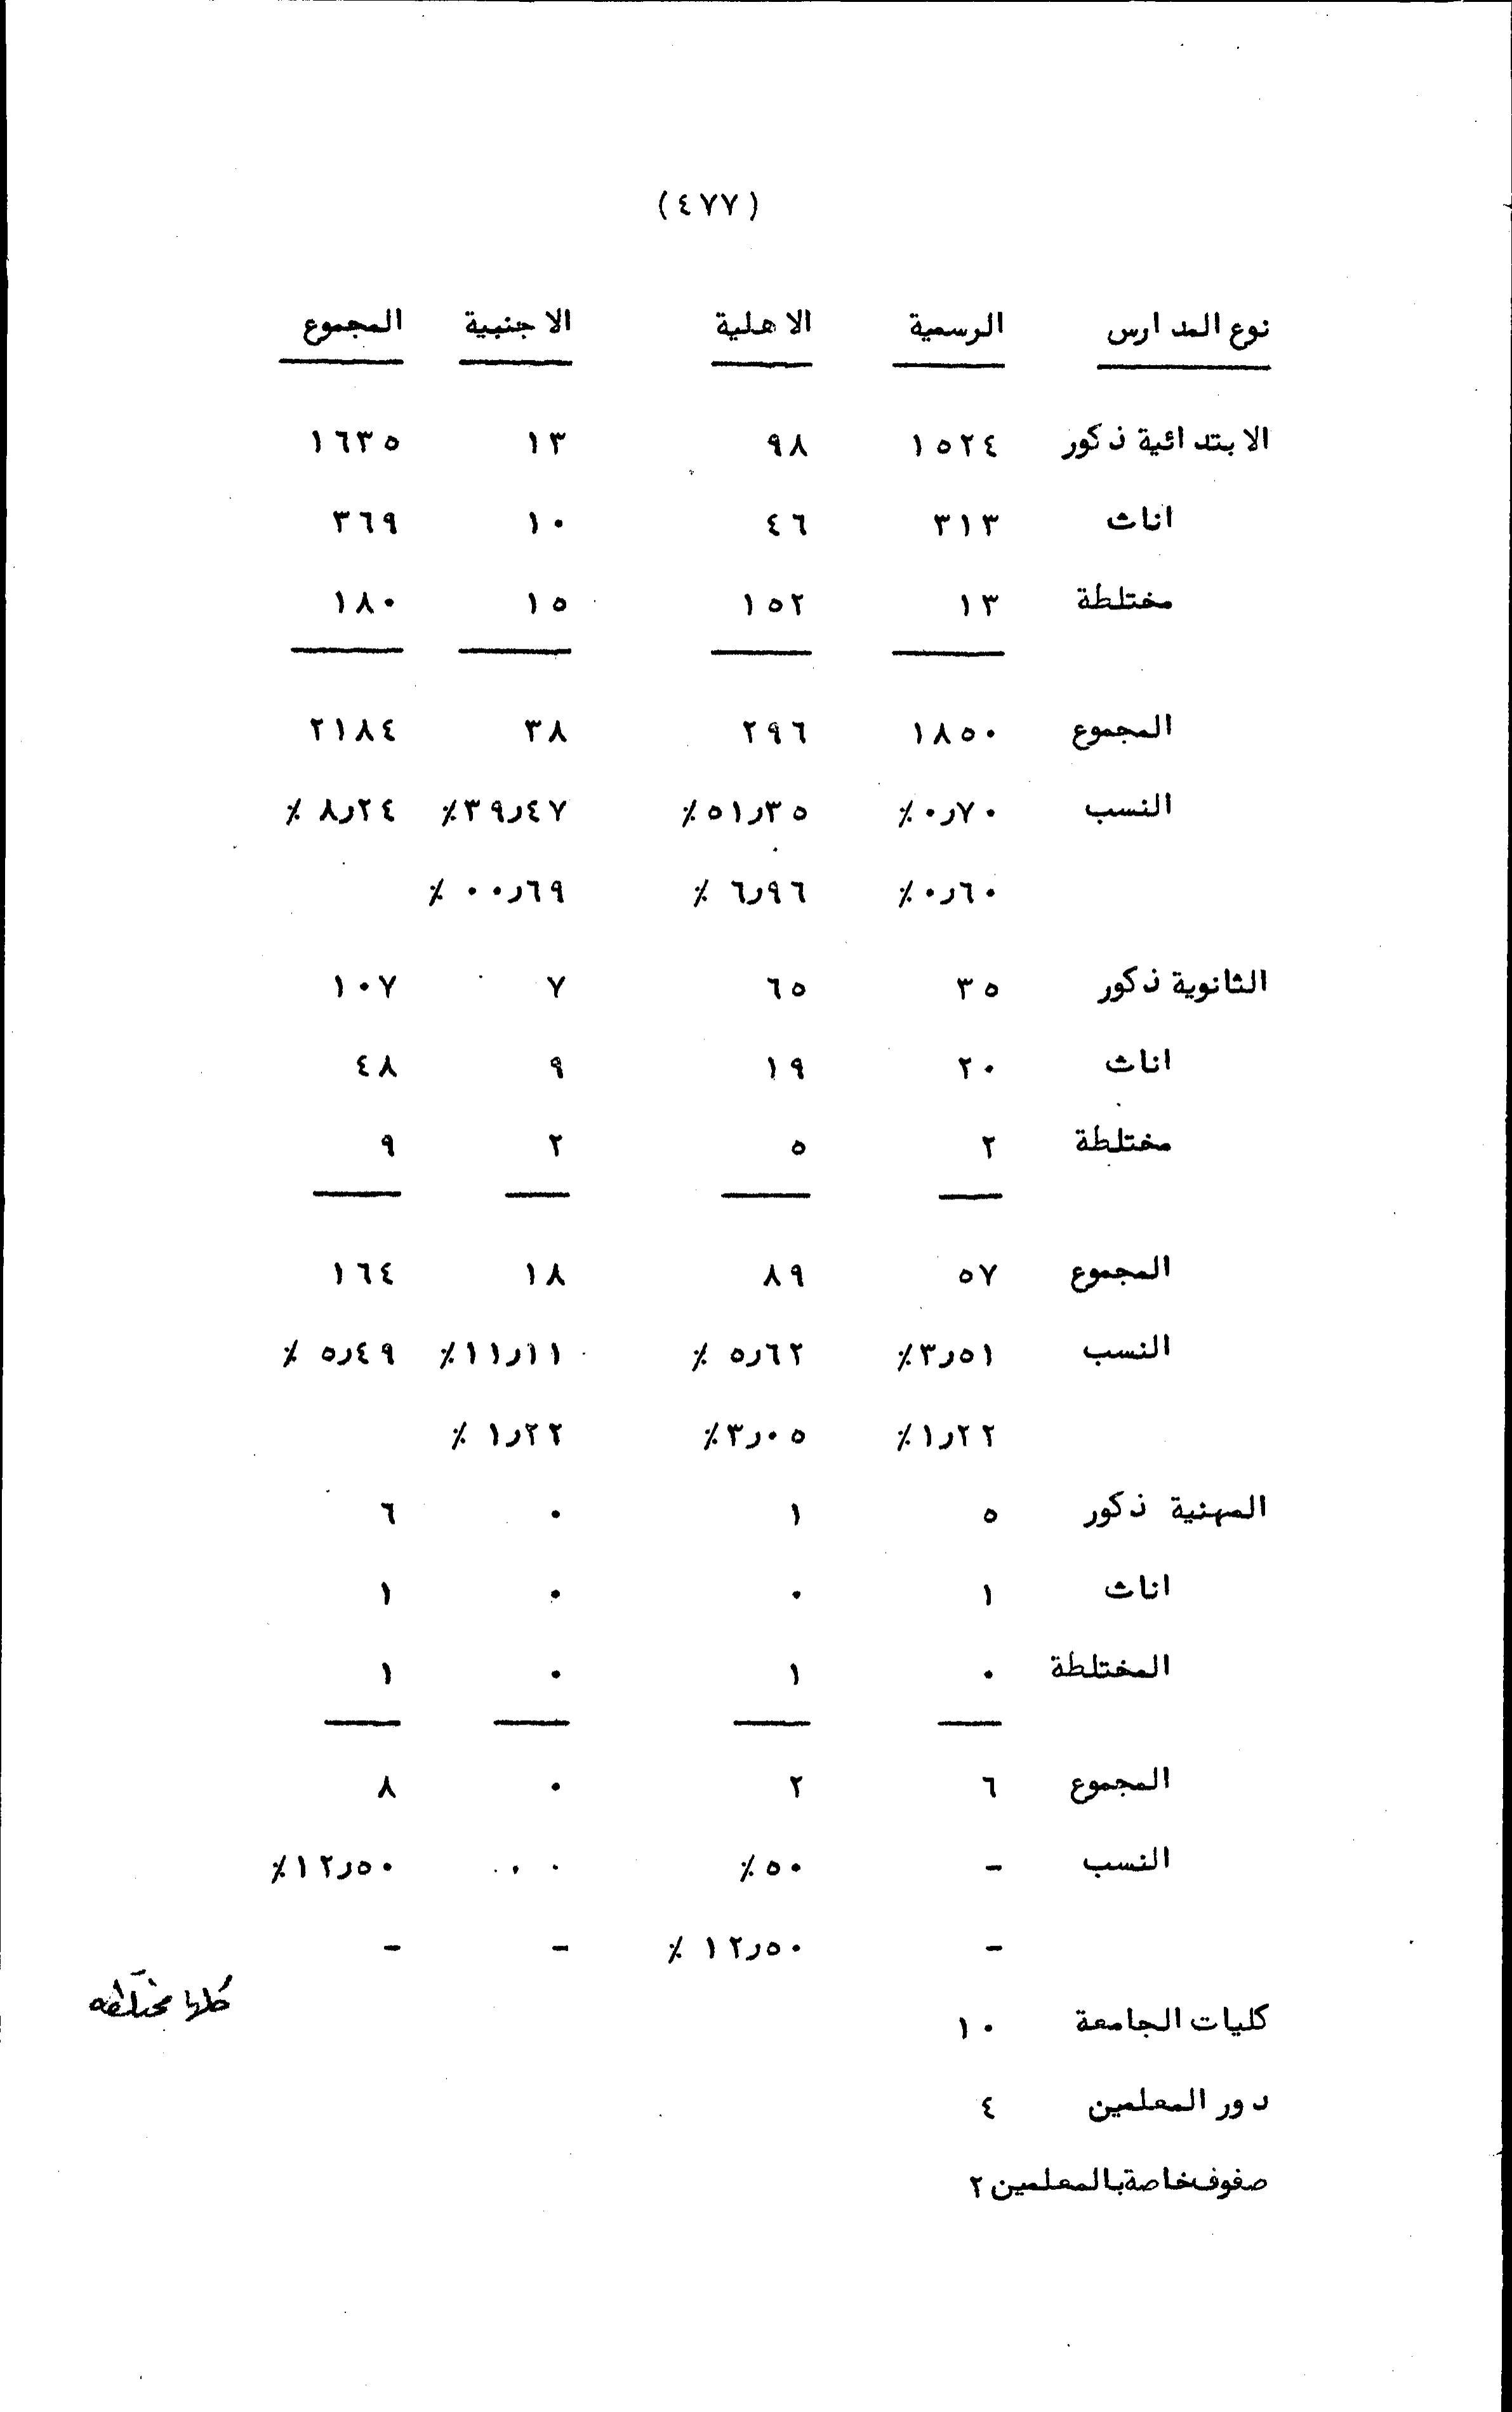 (٤٧٧)
نوع المدارس الرسمية الاهلية الاجنبية المجموع
الابتدائية ذكور ١٥٢٤ ٩٨ ١٣ ١٦٣٥
اناث ٣١٣ ٤٦ ١٠ ٣٦٩
مختلطة ١٣ ١٥٢ ١٥ ١٨٠
المجموع ١٨٥٠ ٢٩٦ ٣٨ ٢١٨٤
النسب ٠ر٧٠٪ ٥١ر٣٥٪ ٣٩ر٤٧٪ ٨ر٢٤٪
٠ر٦٠٪ ٦ر٩٦٪ ٠٠ر٦٩٪
الثانوية ذكور ٣٥ ٦٥ ٧ ١٠٧
اناث ٢٠ ١٩ ٩ ٤٨
مختلطة ٢ ٥ ٢ ٩
المجموع ٥٧ ٨٩ ١٨ ١٦٤
النسب ٣ر٥١٪ ٥ر٦٢٪ ١١ر١١٪ ٥ر٤٩٪
١ر٢٢٪ ٣ر٠٥٪ ١ر٢٢٪
المهنية ذكور ٥ ١ ٠ ٦
اناث ١ ٠ ٠ ١
المختلطة ٠ ١ ٠ ١
المجموع ٦ ٢ ٠ ٨
النسب - ٥٠٪ ٠٠٠ ١٢ر٥٠٪
- ١٢ر٥٠٪ - -
كلها مختلطه
كليات الجامعة ١٠
دور المعلمين ٤
صفوف خاصة بالمعلمين ٢